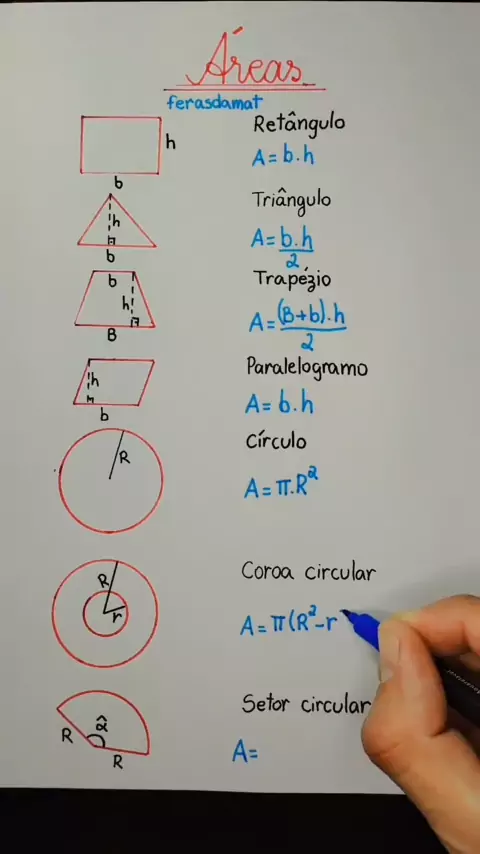 Áreas
ferasdamat
Retângulo
h
A = b.h
b
Triângulo
h
A = b.h
2
b
Trapézio
b
h
A = (B+b).h
2
B
Paralelogramo
h
A = b.h
b
Círculo
R
A = π.R²
Coroa circular
R
r
A = π(R²-r
Setor circular
α̂
R
R
A =